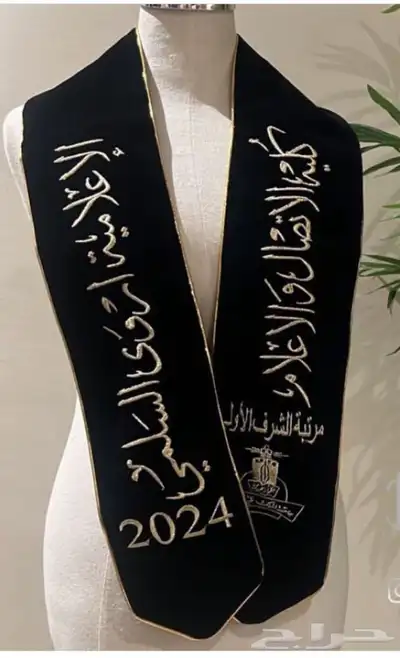 كلية الاتصال والإعلام
مرتبة الشرف الأولى
الإعلامية أروى السلمي
2024
حراج